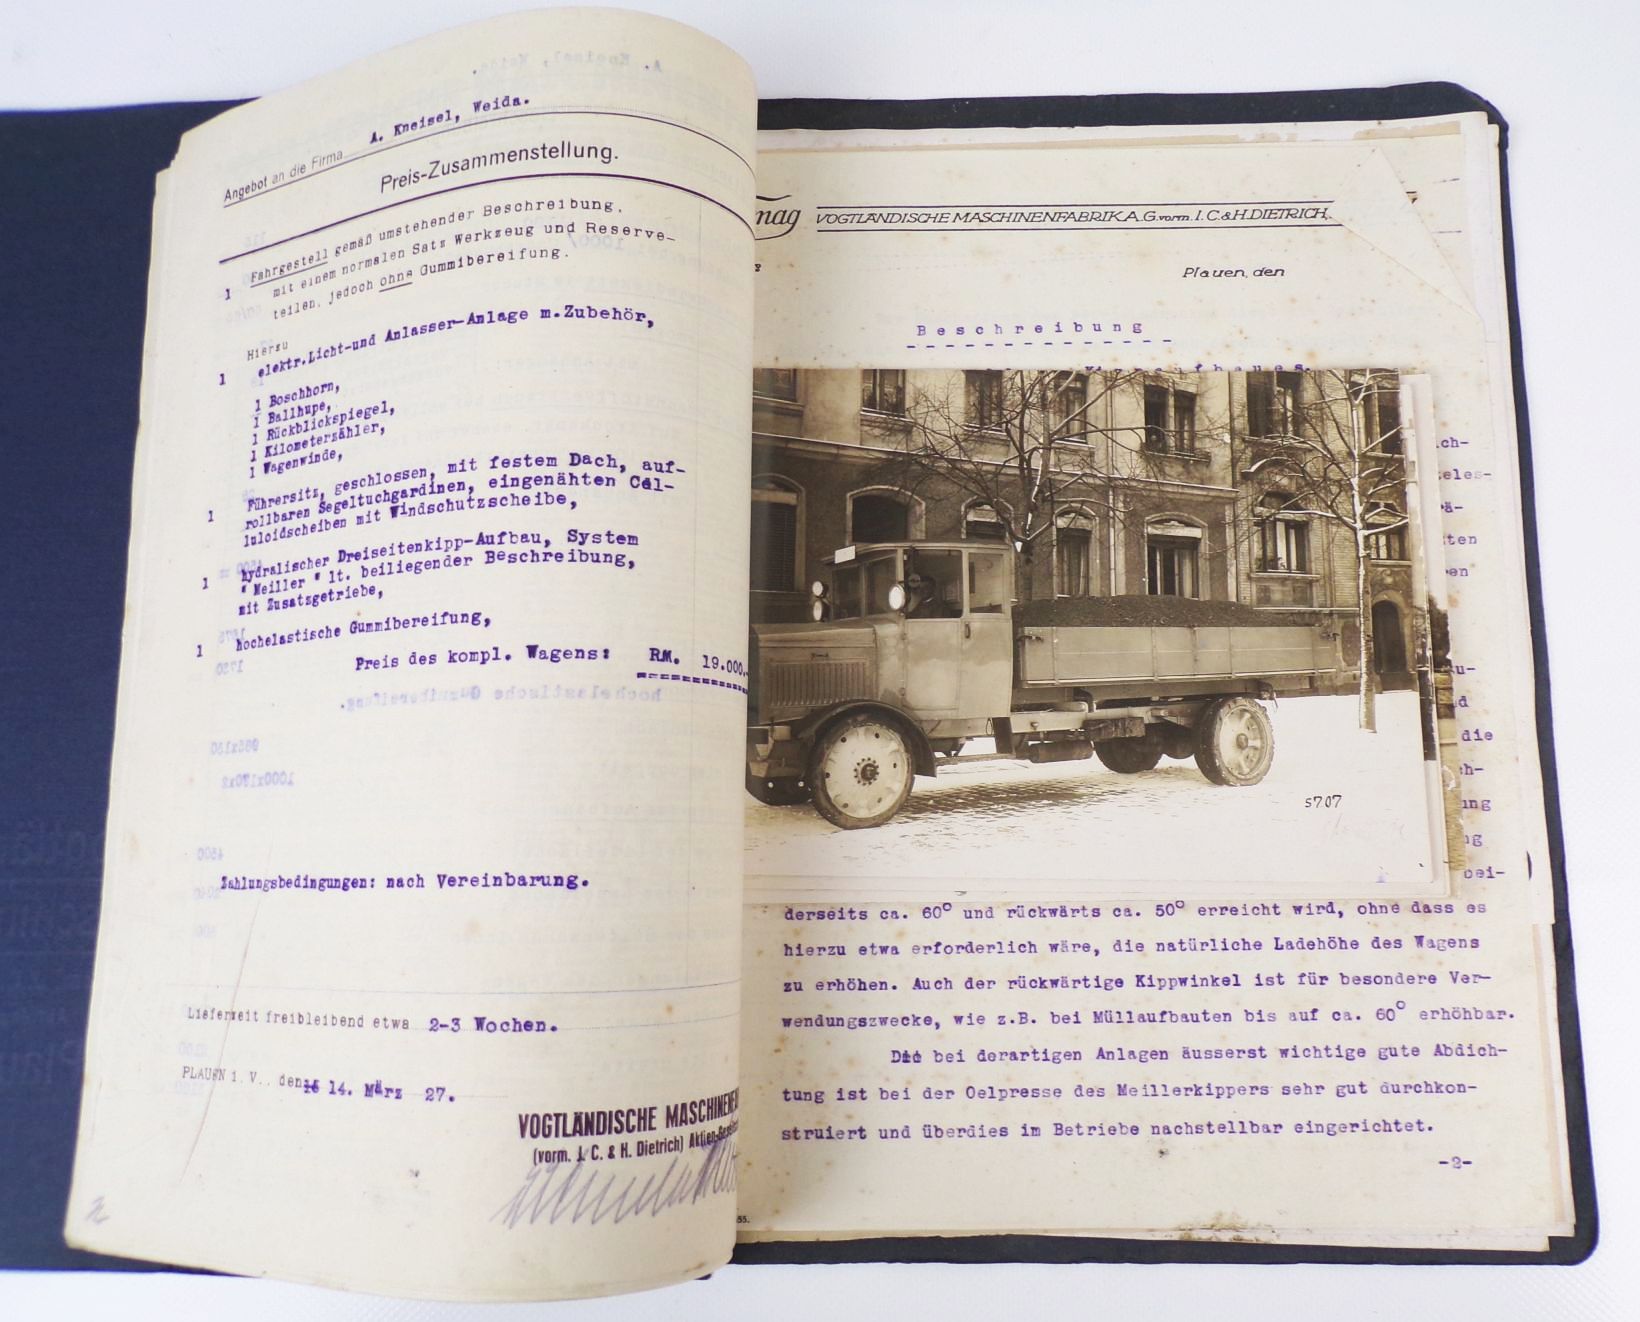 A. Kneisel, Weida.
Angebot an die Firma
Preis-Zusammenstellung.
1 Fahrgestell gemäß umstehender Beschreibung,
mit einem normalen Satz Werkzeug und Reserve-
teilen, jedoch ohne Gummibereifung.
Hierzu
1 elektr.Licht-und Anlasser-Anlage m.Zubehör,
1 Boschhorn,
1 Ballhupe,
1 Rückblickspiegel,
1 Kilometerzähler,
1 Wagenwinde,
1 Führersitz, geschlossen, mit festem Dach, auf-
rollbaren Segeltuchgardinen, eingenähten Cel-
luloidscheiben mit Windschutzscheibe,
1 hydralischer Dreiseitenkipp-Aufbau, System
"Meiller" lt. beiliegender Beschreibung,
mit Zusatzgetriebe,
1 hochelastische Gummibereifung,
Preis des kompl. Wagens: RM. 19.000.-
Zahlungsbedingungen: nach Vereinbarung.
Lieferzeit freibleibend etwa 2-3 Wochen.
PLAUEN i. V., den 14. März 27.
VOGTLÄNDISCHE MASCHINENF
(vorm. J. C. & H. Dietrich) Aktien-Gesel
mag VOGTLÄNDISCHE MASCHINENFABRIK A.G. vorm. I. C. & H. DIETRICH,
Plauen, den
Beschreibung
ich-
teles-
rä-
ten
en
u-
d
die
h-
ung
ng
bei-
5707
derseits ca. 60° und rückwärts ca. 50° erreicht wird, ohne dass es
hierzu etwa erforderlich wäre, die natürliche Ladehöhe des Wagens
zu erhöhen. Auch der rückwärtige Kippwinkel ist für besondere Ver-
wendungszwecke, wie z.B. bei Müllaufbauten bis auf ca. 60° erhöhbar.
Die bei derartigen Anlagen äusserst wichtige gute Abdich-
tung ist bei der Oelpresse des Meillerkippers sehr gut durchkon-
struiert und überdies im Betriebe nachstellbar eingerichtet.
-2-
55.